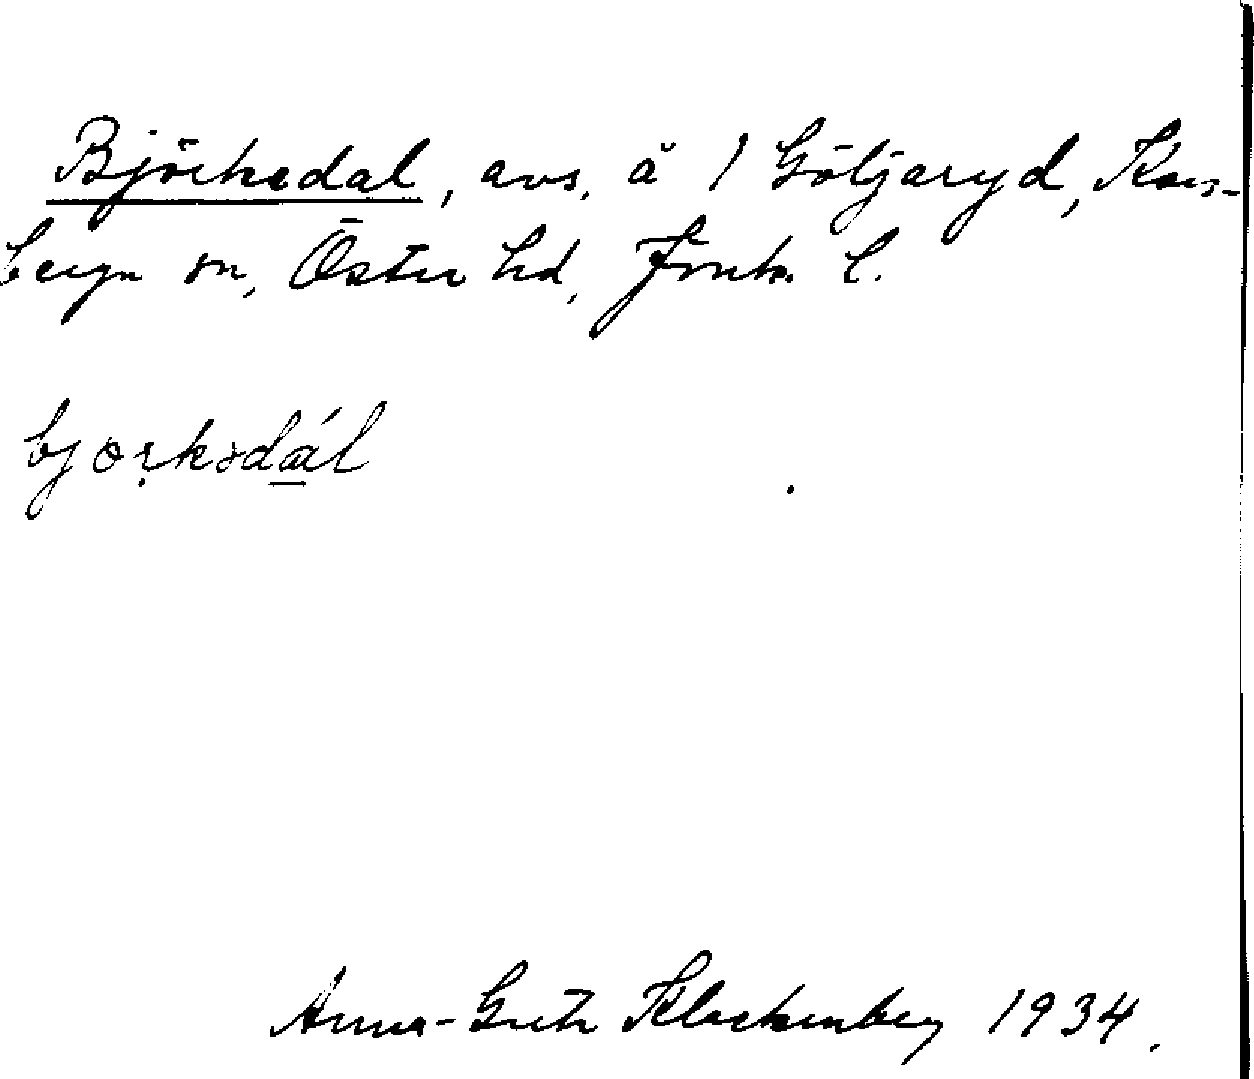 Björkedal, avs. å 1 Göljaryd, Kors-
berga sn, Östra hd, Jönk. l.
bjorkədál
Anna-Greta Klockenberg 1934.